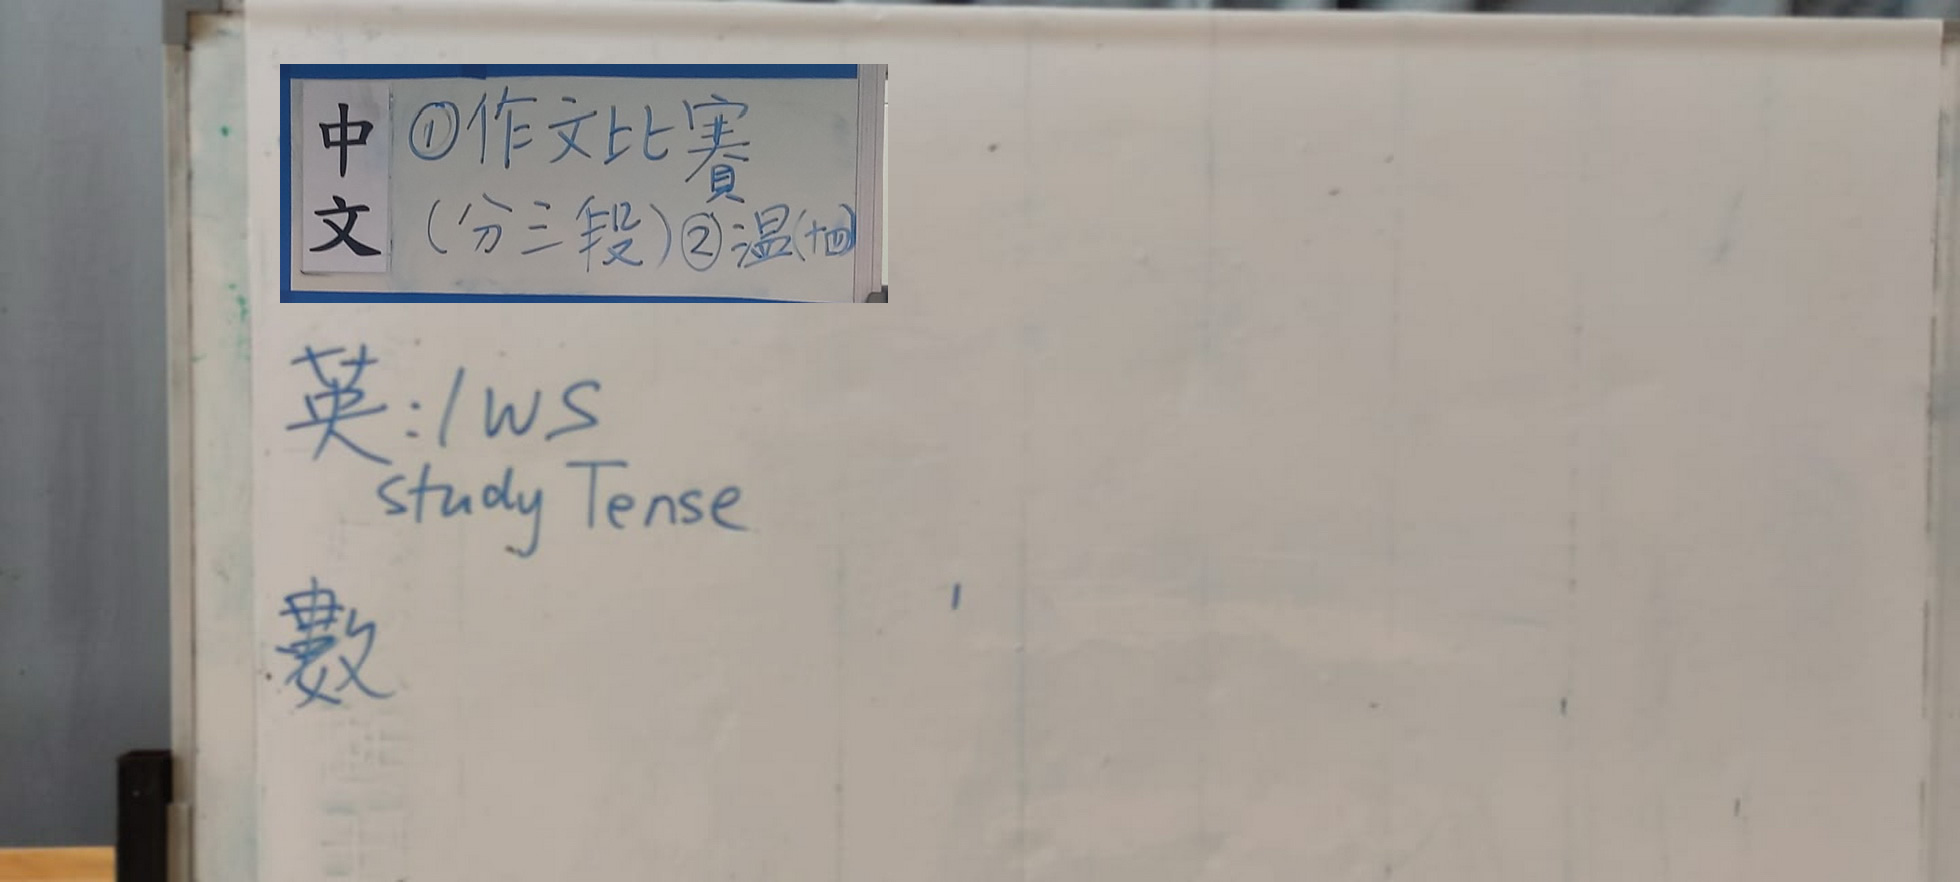 中文
①作文比賽
(分三段)②温(十四)
英:1WS
study Tense
數